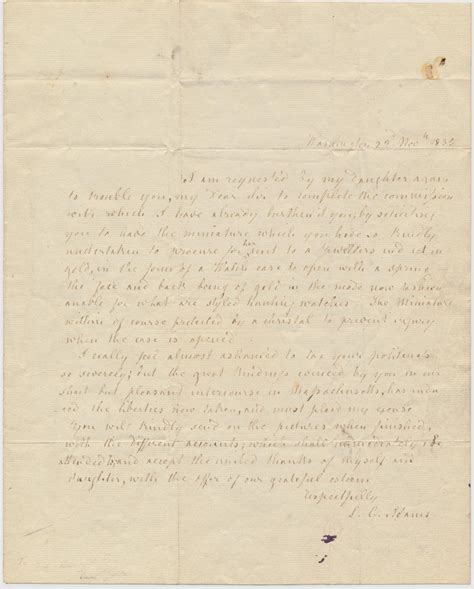 Washington 22d Novth 1832
I am requested by my daughter again
to trouble you, my Dear Sir to complete the commission
with which I have already burthen'd you, by
you to have the miniature which you have so kindly
undertaken to procure for her sent to a jewellers and set in
gold, in the form of a Watch case to open with a spring
the face and back being of gold in the mode now fashion
anable for what are styled hunting watches. The Miniature
within of course protected by a christal to prevent injury
when the case is opened
I really feel almost ashamed to tax your politeness
so severely; but the great kindness evinced by you in our
short but pleasant intercourse in Massachusetts, has indu
ced the liberties now taken, and must plead my excuse
You will kindly send on the pictures when finished,
with the different accounts, which shall immediately be
attended to and accept the united thanks of myself and
daughter, with the offer of our grateful esteem
Respectfully
L. C. Adams